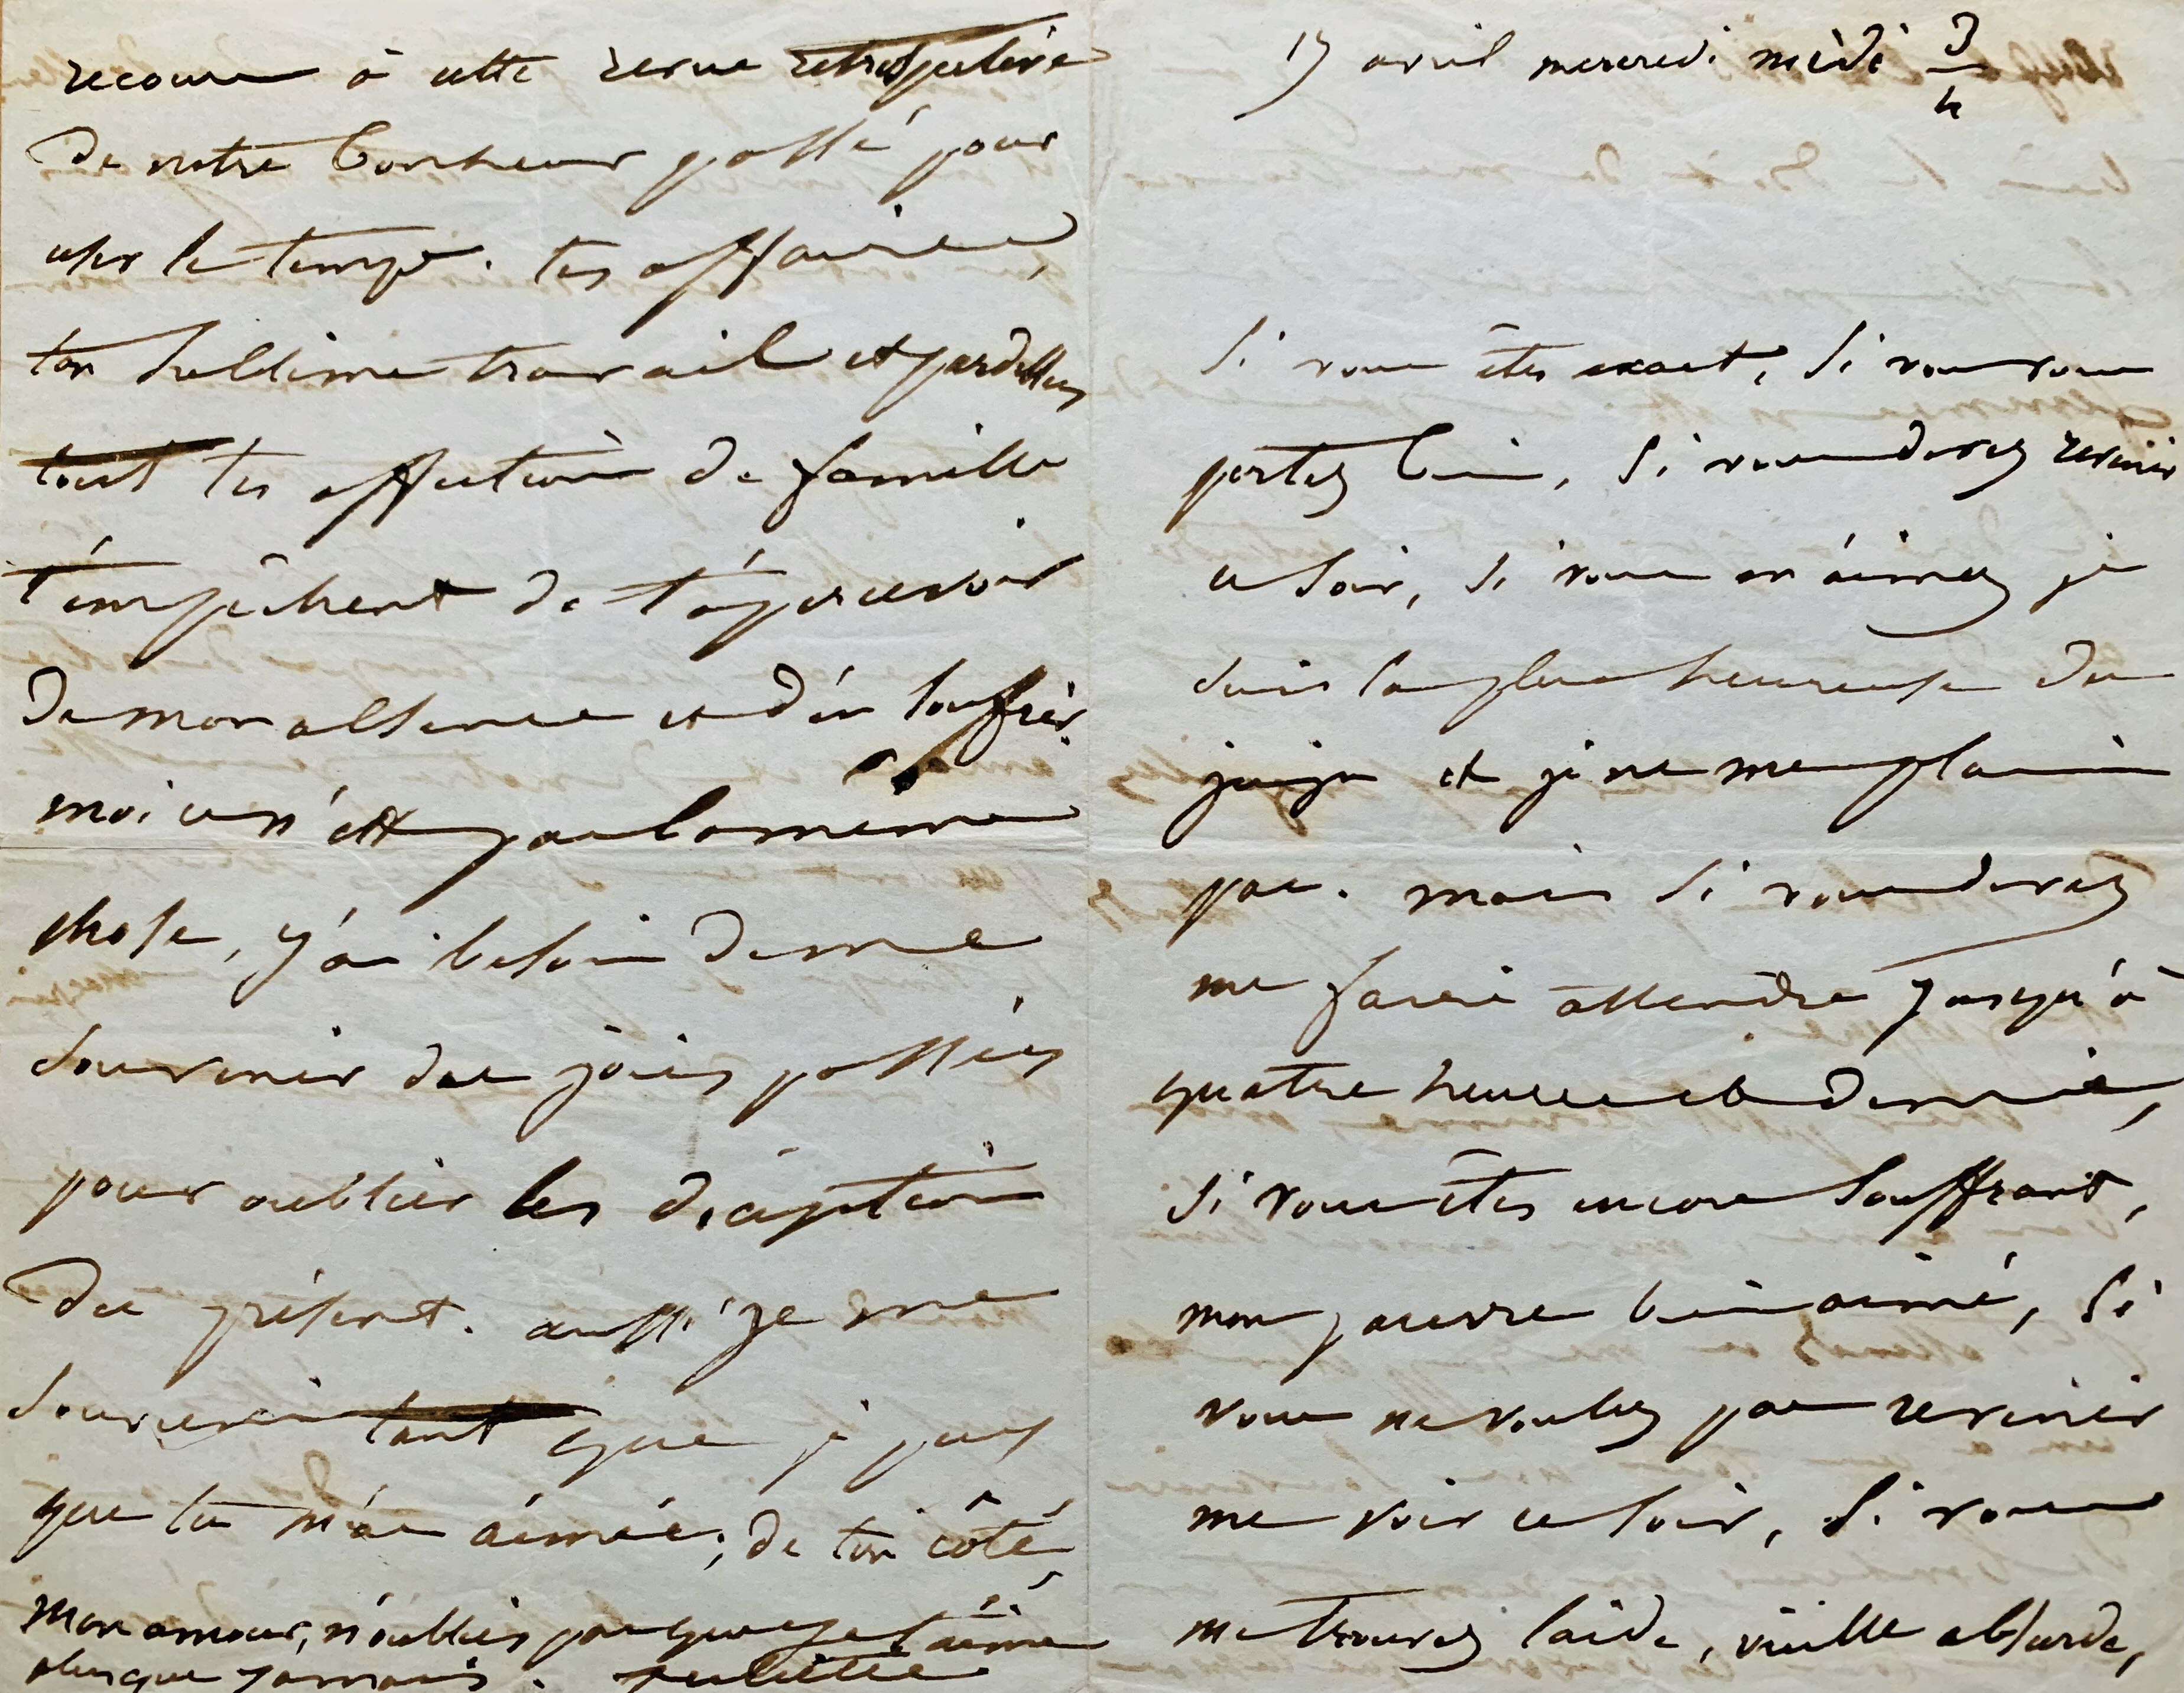 recours à cette revue retrospective
de notre bonheur passé pour
user le temps. tes affaires,
ton sublime travail et pardessus
tout tes affections de famille
t'empêchent de t'apercevoir
de mon absence et d'en souffrir.
moi ce n'est pas la même
chose, j'ai besoin de me
souvenir des joies passées
pour oublier les déceptions
du présent. aussi je me
souviens tant que je puis
que tu m'as aimée; de ton côté
mon amour, n'oublies pas que je t'aime
plus que jamais. Juliette
17 avril mercredi midi 3/4
Si vous êtes exact, si vous vous
portez bien, si vous devez revenir
ce soir, si vous m'aimez je
suis la plus heureuse des
juju et je ne me plains
pas. mais si vous devez
me faire attendre jusqu'à
quatre heures et demie,
si vous êtes encore souffrant,
mon pauvre bien aimé, si
vous ne voulez pas revenir
me voir ce soir, si vous
me trouvez laide, vieille absurde,